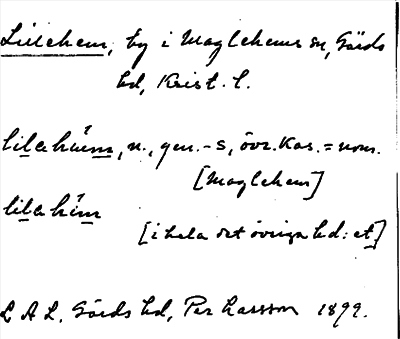 Lillehem, by i Maglehems sn, Gärds
hd, Krist. l.
lilahäim, n., gen. -s, övr. kas. = nom.
[Maglehem]
lilahim
[i hela det övriga hd: et]
L A L. Gärds hd, Per Larsson 1899.